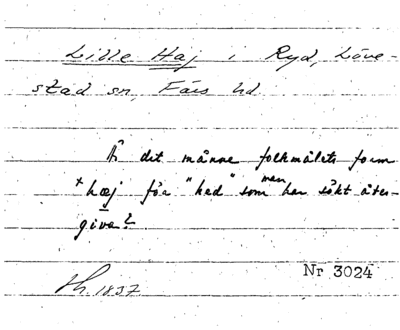 Lille Haj i Ryd, Löve-
stad sn, Färs hd
Är det månne folkmålets form
*hæj för "hed" som man har sökt åter-
give?
Nr 3024
Th. 1837.